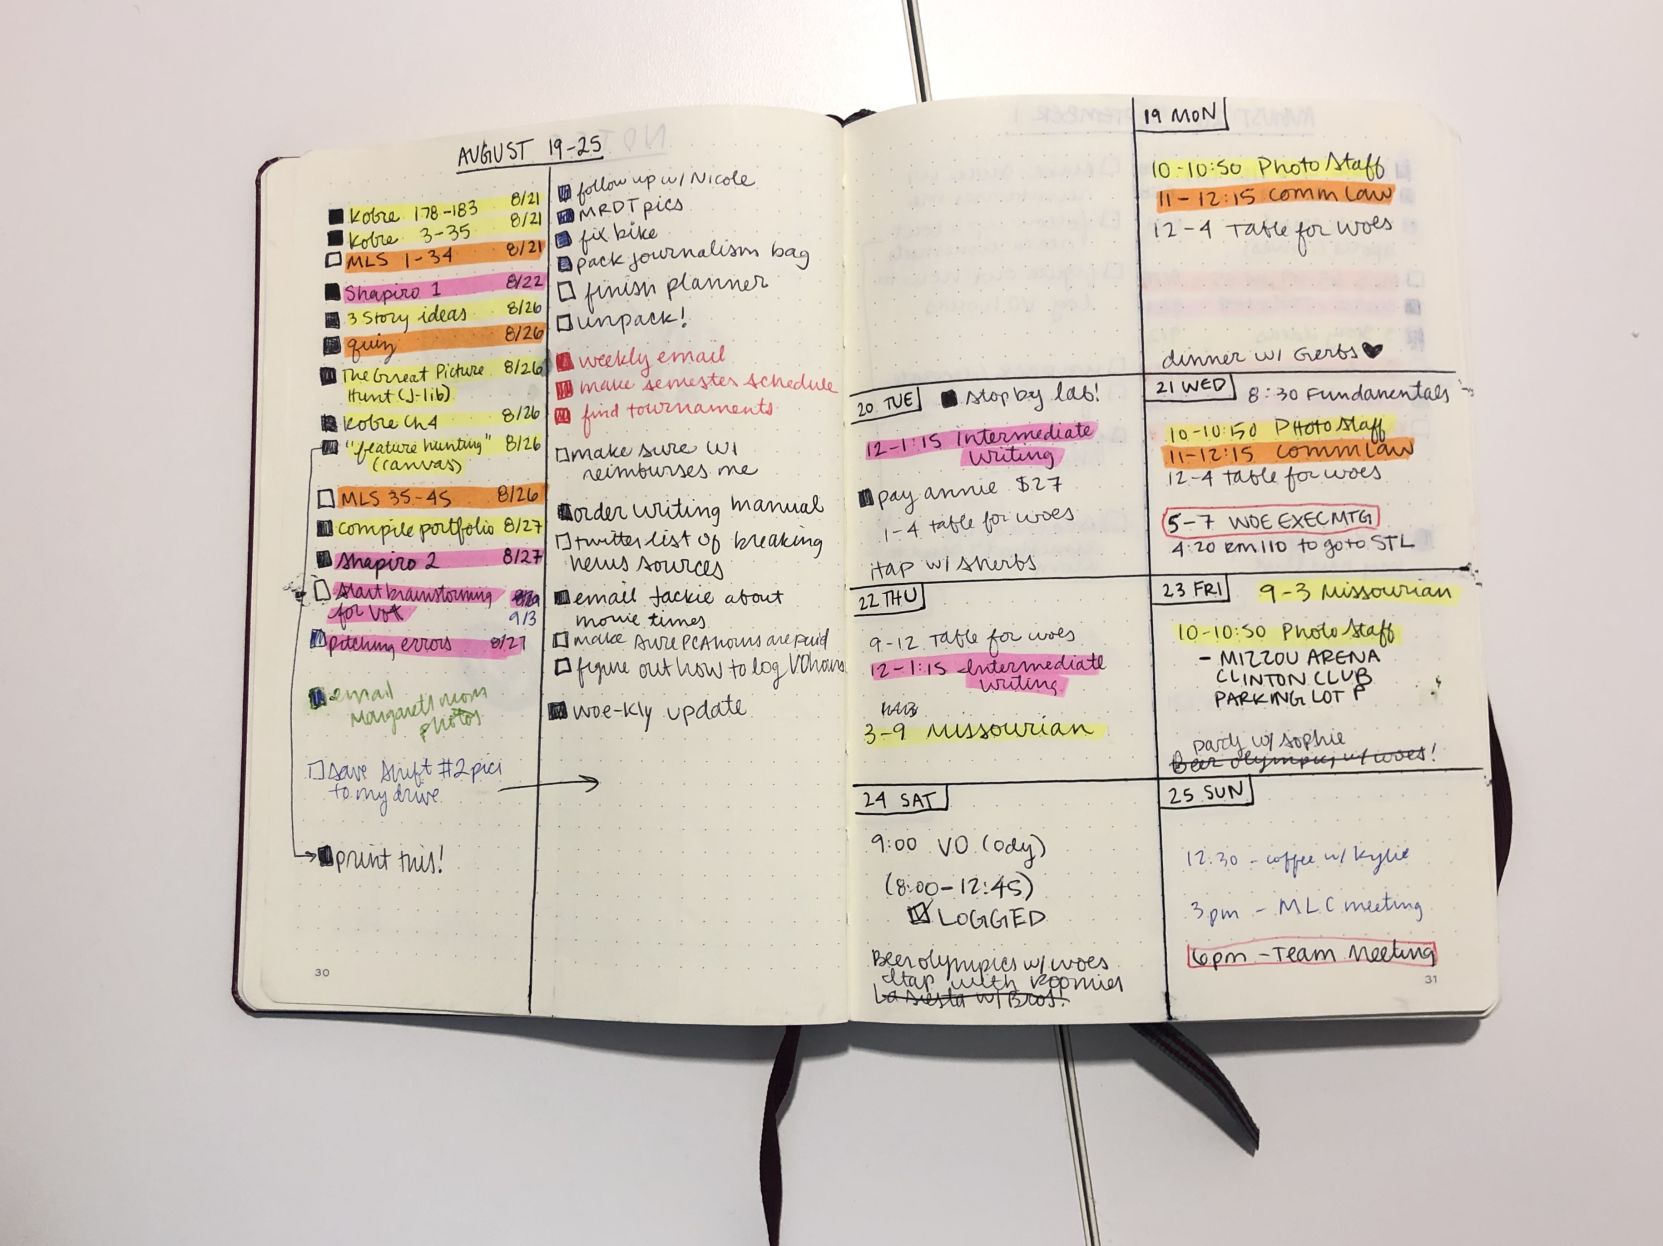 AUGUST 19-25
Kobre 178-183 8/21
Kobre 3-35 8/21
MLS 1-34 8/21
Shapiro 1 8/22
3 Story ideas 8/26
quiz 8/26
The Great Picture 8/26
Hunt (J-lib)
Kobre Ch 4 8/26
"feature hunting" 8/26
(canvas)
MLS 35-45 8/26
compile portfolio 8/27
Shapiro 2 8/27
start brainstorming
for Vox 9/3
pitching errors 8/27
email
Margaret's mom
photos
save shift #2 pics
to my drive
print this!
30
follow up w/ Nicole
MRDT pics
fix bike
pack journalism bag
finish planner
unpack!
weekly email
make semester schedule
find tournaments
make sure WI
reimburses me
order writing manual
twitter list of breaking
news sources
email Jackie about
movie times
make sure PCA hours are paid
figure out how to log VO hours
woe-kly update
19 MON
10-10:50 Photo Staff
11-12:15 Comm Law
12-4 Table for woes
dinner w/ Gerbs
20 TUE stop by lab!
12-1:15 Intermediate
Writing
pay annie $27
1-4 table for woes
itap w/ sherbs
21 WED 8:30 Fundamentals
10-10:50 Photo Staff
11-12:15 Comm Law
12-4 table for woes
5-7 WOE EXEC MTG
4:20 RM 110 to go to STL
22 THU
9-12 Table for woes
12-1:15 Intermediate
Writing
3-9 Missourian
23 FRI 9-3 Missourian
10-10:50 Photo Staff
- MIZZOU ARENA
CLINTON CLUB
PARKING LOT P
party w/ Sophie
Beer olympics w/ woes!
24 SAT
9:00 VO (ody)
(8:00-12:45)
LOGGED
Beer olympics w/ woes
itap with roomies
La Siesta w/ Bros.
25 SUN
12:30 - coffee w/ Kylie
3pm - MLC meeting
6pm - Team Meeting
31